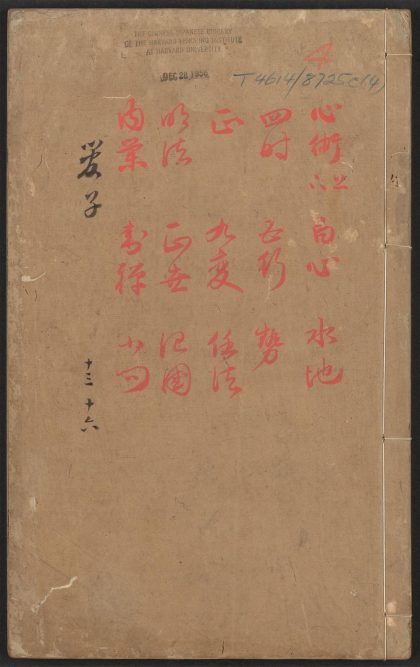 THE CHINESE-JAPANESE LIBRARY
OF THE HARVARD-YENCHING INSTITUTE
AT HARVARD UNIVERSITY
T4614/8725c(4)
4
心術上下 白心 水地
四時 五行 勢
正 九變 任法
明法 正世 治國
內業 封禪 小問
管子
十三 十六